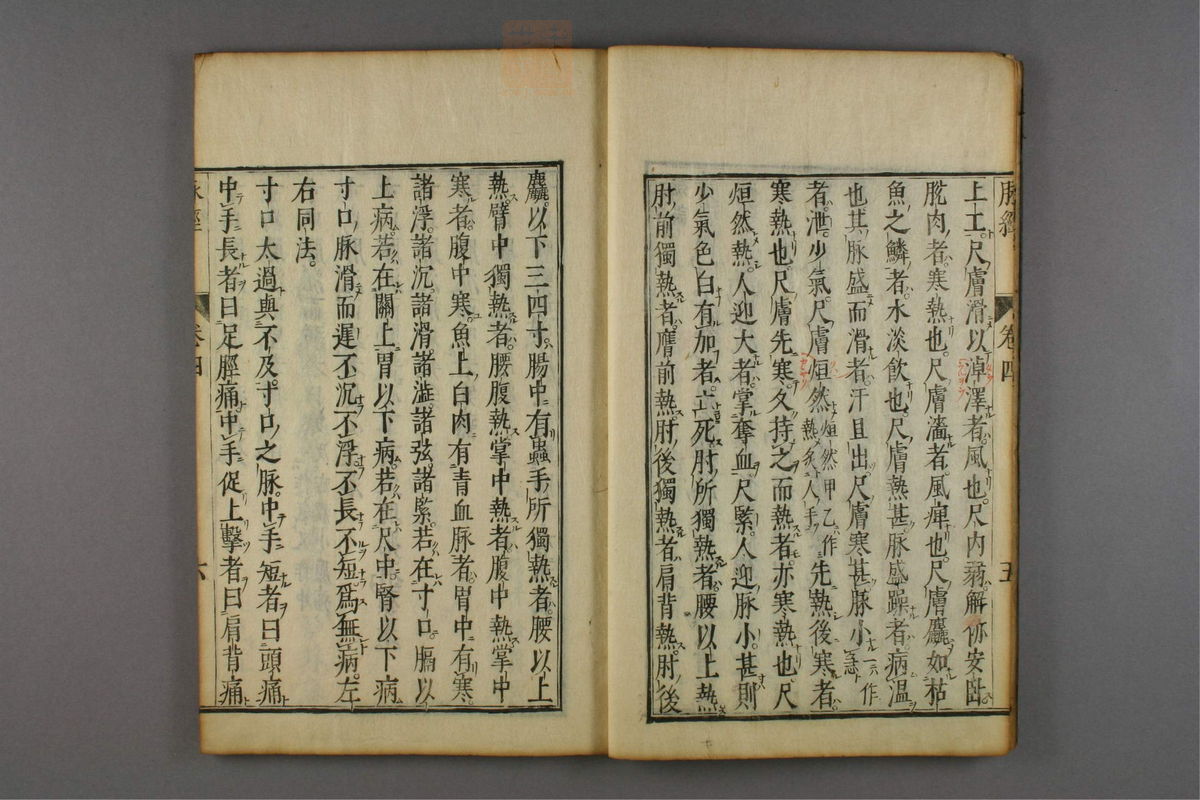 脉經 卷四 五
上工尺膚滑以淖澤者風也尺内弱解㑊安臥
脫肉者寒熱也尺膚濇者風痺也尺膚麤如枯
魚之鱗者水淡飲也尺膚熱甚脉盛躁者病温
也其脉盛而滑者汗且出尺膚寒甚脉小一作急
者泄少氣尺膚烜然烜然甲乙作熱炙人手先熱後寒者
寒熱也尺膚先寒久持之而熱者亦寒熱也尺
烜然熱人迎大者掌奪血尺緊人迎脉小甚則
少氣色白有加者立死肘所獨熱者腰以上熱
肘前獨熱者膺前熱肘後獨熱者肩背熱肘後
麤以下三四寸腸中有蟲手所獨熱者腰以上
熱臂中獨熱者腰腹熱掌中熱者腹中熱掌中
寒者腹中寒魚上白肉有青血脉者胃中有寒
諸浮諸沉諸滑諸澁諸弦諸緊若在寸口膈以
上病若在關上胃以下病若在尺中腎以下病
寸口脉滑而遲不沉不浮不長不短爲無病左
右同法。
寸口太過與不及寸口之脉中手短者曰頭痛
中手長者曰足脛痛中手促上擊者曰肩背痛
脉經 卷四 六